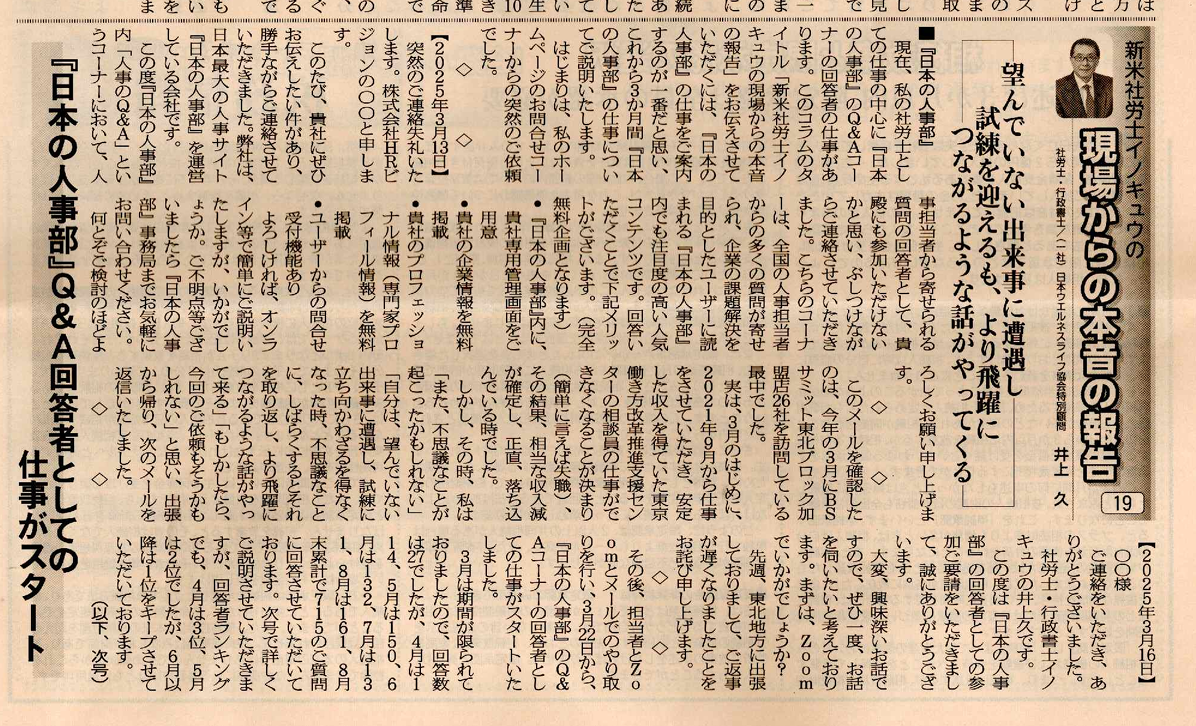 新米社労士イノキュウの
現場からの本音の報告
19
社労士・行政書士/(一社)日本ウエルネスライフ協会特別顧問　井上　久
望んでいない出来事に遭遇し
試練を迎えるも、より飛躍に
つながるような話がやってくる
■『日本の人事部』
現在、私の社労士とし
ての仕事の中心に『日本
の人事部』のQ&Aコー
ナーの回答者の仕事があ
ります。このコラムのタ
イトル「新米社労士イノ
キュウの現場からの本音
の報告」をお伝えさせて
いただくには、『日本の
人事部』の仕事をご案内
するのが一番だと思い、
これから3か月間『日本
の人事部』の仕事につい
てご説明いたします。
はじまりは、私のホー
ムページのお問合せコー
ナーからの突然のご依頼
でした。
◇　◇
【2025年3月13日】
突然のご連絡失礼いた
します。株式会社HRビ
ジョンの〇〇と申しま
す。
このたび、貴社にぜひ
お伝えしたい件があり、
勝手ながらご連絡させて
いただきました。弊社は、
日本最大の人事サイト
『日本の人事部』を運営
している会社です。
この度『日本の人事部』
内「人事のQ&A」とい
うコーナーにおいて、人
事担当者から寄せられる
質問の回答者として、貴
殿にも参加いただけない
かと思い、ぶしつけなが
らご連絡させていただき
ました。こちらのコーナ
ーは、全国の人事担当者
からの多くの質問が寄せ
られ、企業の課題解決を
目的としたユーザーに読
まれる『日本の人事部』
内でも注目度の高い人気
コンテンツです。回答い
ただくことで下記メリッ
トがございます。(完全
無料企画となります)
•『日本の人事部』内に、
貴社専用管理画面をご
用意
•貴社の企業情報を無料
掲載
•貴社のプロフェッショ
ナル情報(専門家プロ
フィール情報)を無料
掲載
•ユーザーからの問合せ
受付機能あり
よろしければ、オンラ
イン等で簡単にご説明い
たしますが、いかがでし
ょうか。ご不明点等ござ
いましたら『日本の人事
部』事務局までお気軽に
お問い合わせください。
何とぞご検討のほどよ
ろしくお願い申し上げま
す。
◇　◇
このメールを確認した
のは、今年の3月にBS
サミット東北ブロック加
盟店26社を訪問している
最中でした。
実は、3月のはじめに、
2021年9月から仕事
をさせていただき、安定
した収入を得ていた東京
働き方改革推進支援セン
ターの相談員の仕事がで
きなくなることが決まり
(簡単に言えば失職)、
その結果、相当な収入減
が確定し、正直、落ち込
んでいる時でした。
しかし、その時、私は
「また、不思議なことが
起こったかもしれない」
「自分は、望んでいない
出来事に遭遇し、試練に
立ち向かわざるを得なく
なった時、不思議なこと
に、しばらくするとそれ
を取り返し、より飛躍に
つながるような話がやっ
て来る」「もしかしたら、
今回のご依頼もそうかも
しれない」と思い、出張
から帰り、次のメールを
返信いたしました。
◇　◇
【2025年3月16日】
〇〇様
ご連絡をいただき、あ
りがとうございました。
社労士・行政書士イノ
キュウの井上久です。
この度は『日本の人事
部』の回答者としての参
加ご要請をいただきまし
て、誠にありがとうござ
います。
大変、興味深いお話で
すので、ぜひ一度、お話
を伺いたいと考えており
ます。まずは、Zoom
でいかがでしょうか?
先週、東北地方に出張
しておりまして、ご返事
が遅くなりましたことを
お詫び申し上げます。
◇　◇
その後、担当者とZo
omとメールでのやり取
りを行い、3月22日から、
『日本の人事部』のQ&
Aコーナーの回答者とし
ての仕事がスタートいた
しました。
3月は期間が限られて
おりましたので、回答数
は27でしたが、4月は1
14、5月は150、6
月は132、7月は13
1、8月は161、8月
末累計で715のご質問
に回答させていただいて
おります。次号で詳しく
ご説明させていただきま
すが、回答者ランキング
でも、4月は3位、5月
は2位でしたが、6月以
降は1位をキープさせて
いただいております。
(以下、次号)
『日本の人事部』Q&A回答者としての
仕事がスタート